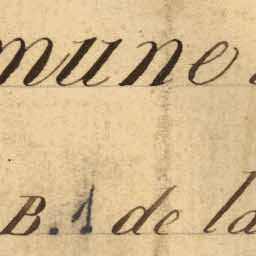 mune
B. 1 de la